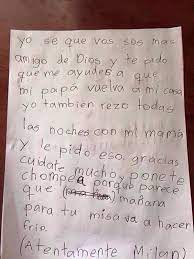 yo se que vos sos mas
amigo de Dios y te pido
que me ayudes a que
mi papá vuelva a mi casa
yo tambien rezo todas
las noches con mi mamá
Y le pido eso. gracias
cuidate mucho y ponete
chompea porque parece
que mañana
para tu misa va a hacer
frio.
(Atentamente Milan)